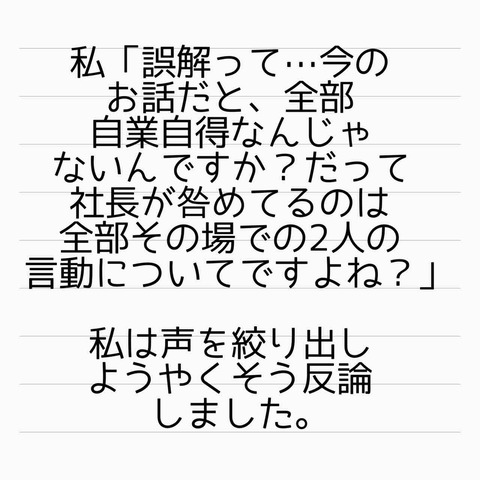 私「誤解って…今の
お話だと、全部
自業自得なんじゃ
ないんですか？だって
社長が咎めてるのは
全部その場での2人の
言動についてですよね？」
私は声を絞り出し
ようやくそう反論
しました。